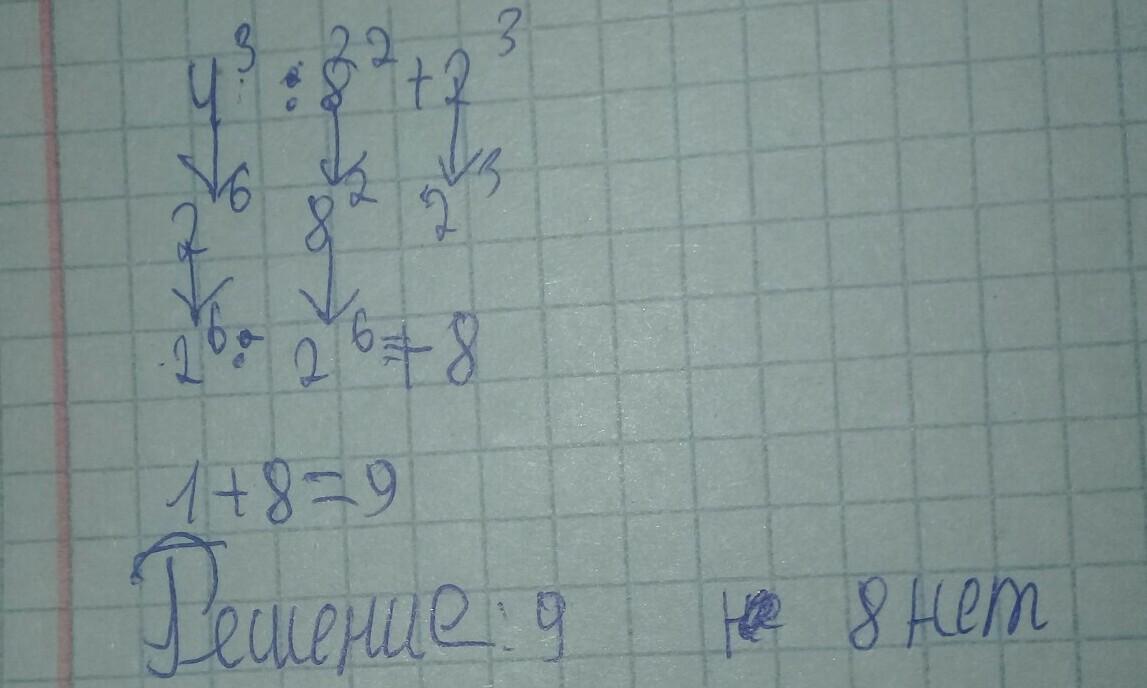 4³ : 8² + 2³
2⁶ 8² 2³
2⁶ : 2⁶ + 8
1+8=9
Решение: 9 8 нет